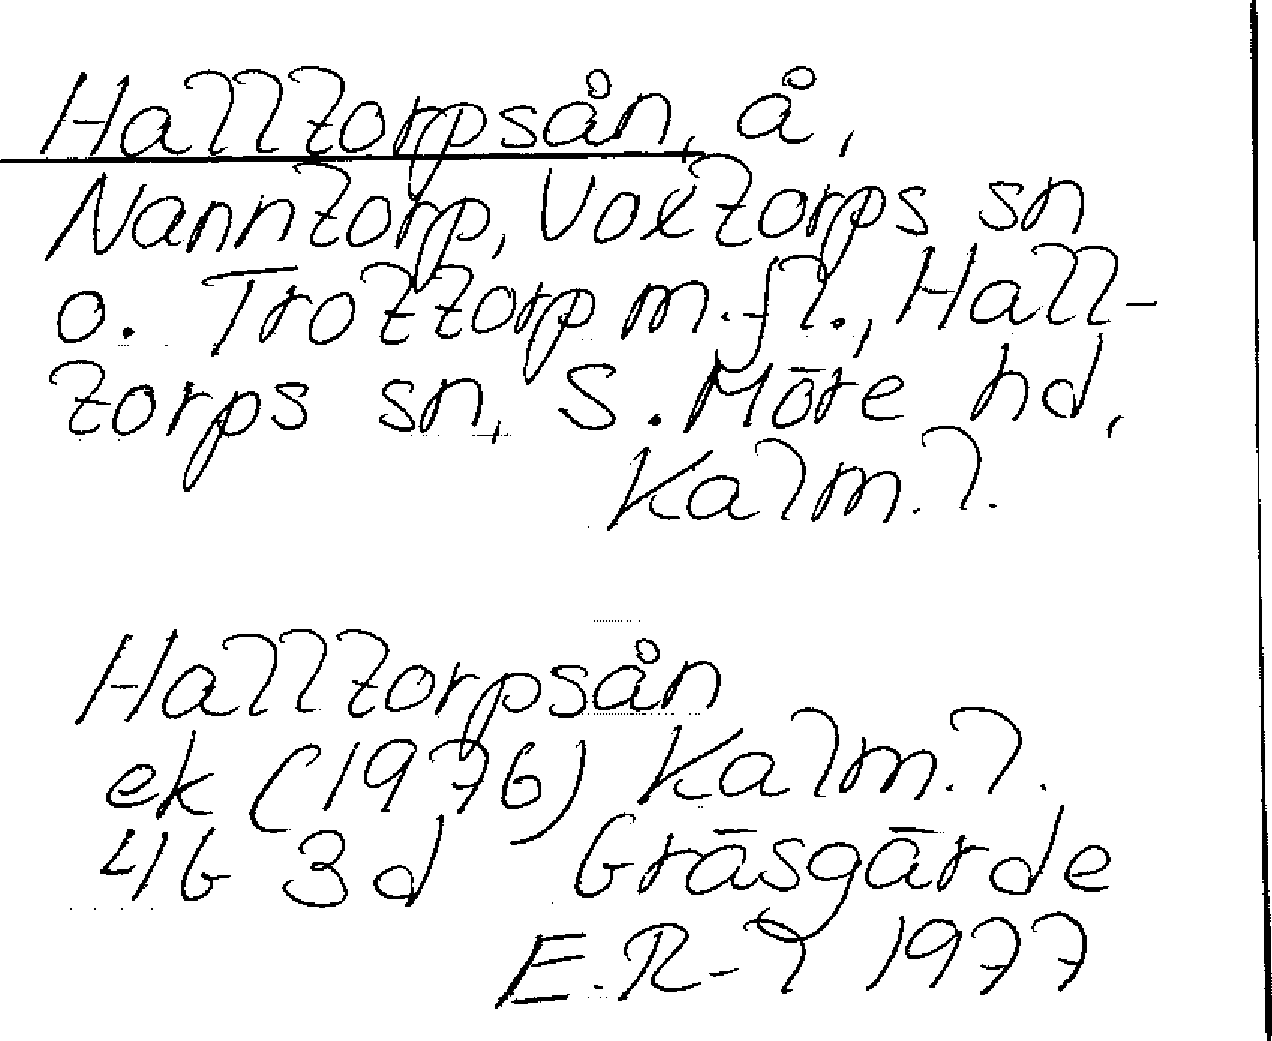 Halltorpsån, å,
Nanntorp, Voxtorps sn
o. Trottorp m.fl., Hall-
torps sn, S. Möre hd,
Kalm.l.
Halltorpsån
ek (1976) Kalm.l.
4G 3d Gräsgärde
E.R-l 1977